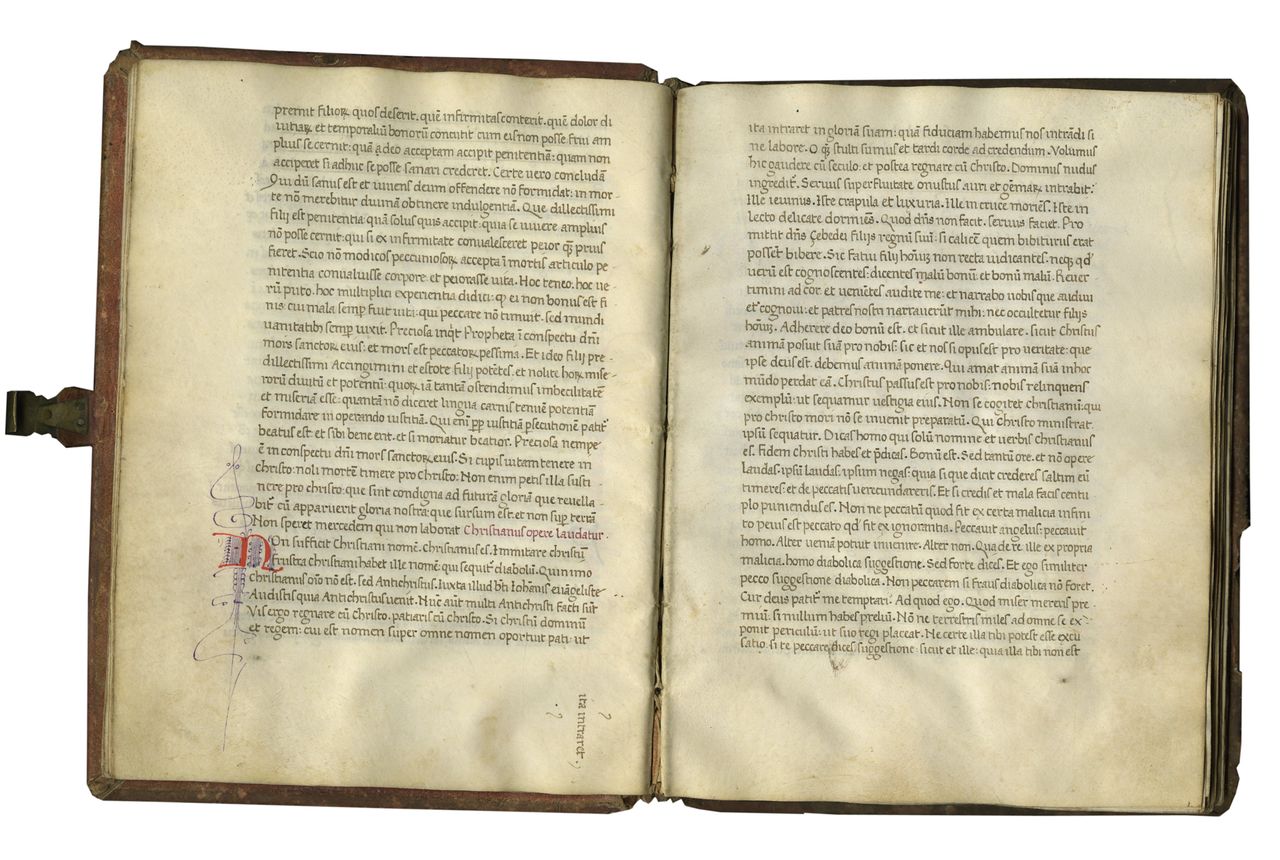 premit filioꝝ quos deserit. quē infirmitas conterit. quē dolor di
uitiaꝝ et temporaliū bonorū concutit cum eis non posse frui am
plius se cernit: quā adeo acceptam accipit penitentiā: quam non
acciperet si adhuc se posse sanari crederet. Certe uero concludā
Qui dū sanus est et iuuens deum offendere nō formidat: in mor-
te nō merebitur diuinā obtinere indulgentiā. Que dillectissimi
filij est penitentia quā solus quis accipit: quia se uiuere amplius
nō posse cernit: qui si ex infirmitate conualesceret peior qȝ prius
fieret. Scio nō modicos peccuniosoꝝ accepta ī mortis articulo pe-
nitentia conualuisse corpore. et peiorasse uita. Hoc teneo. hoc ue-
rū puto. hoc multiplici experientia didici: ꝙ ei non bonus est fi-
nis. cui mala semꝑ fuit uita: qui peccare nō timuit. sed mundi
uanitatibꝰ semꝑ uixit. Preciosa inqͥt Propheta ī conspectu dn̄i
mors sanctoꝝ eius: et mors est peccatoꝝ pessima. Et ideo filij pre-
dillectissimi Accingimini et estote filij potētes. et nolite hoꝝ mise-
rorū diuitū et potentū: quoꝝ iā tantā ostendimus imbecilitatē
et miseriā esse: quantā nō diceret lingua carnis tenuē potentiā
formidare in operando iustitiā. Qui eni ꝓp iustitiā ꝑsecutionē patit͛
beatus est: et sibi bene erit. et si moriatur beatior. Preciosa nempe
ē in conspectu dn̄i mors sanctoꝝ eius. Si cupis uitam tenere in
christo: noli mortē timere pro Christo: Non enim petis illa susti-
nere pro christo: que sint condigna ad futurā gloriā que reuella-
bit͛ cū apparuerit gloria nostra: que sursum est. et non suꝑ terrā
Non speret mercedem qui non laborat Christianus opere laudatur.
NOn sufficit Christiani nomē. christianus es. Immitare christū
frustra christiani habet ille nomē: qui sequit͛ diabolū. Quinimo
christianus oīo nō est. sed Antichristus. Iuxta illud bt̄i Iohānis euāgeliste
Audistis quia Antichristus uenit. Nūc aūt multi Antichristi facti sūt
Vis ergo regnare cū Christo. patiaris cū christo. Si christū dominū
et regem: cui est nomen super omne nomen oportuit pati: ut
ita intraret
ita intraret in gloriā suam: quā fiduciam habemus nos intrādi si
ne labore. O qȝ stulti sumus et tardi corde ad credendum. Volumus
hic gaudere cū seculo: et postea regnare cū Christo. Dominus nudus
ingredit͛. Seruus superfluitate onustus auri et gēmaꝝ intrabit:
Ille ieiunus. Iste crapula et luxuria. Ille in cruce moriēs. Iste in
lecto delicate dormiēs. Quod dn̄s non facit. seruus faciet. Pro
mittit dn̄s Çebedei filijs regnū suū: si calicē quem bibiturus erat
possēt bibere. Sic fatui filij hoīuꝫ non recta iudicantes. neqȝ qd̄
uerū est cognoscentes: dicentes malū bonū: et bonū malū. Reuer-
timini ad cor. et uenientes audite me: et narrabo uobis que audiui
et cognoui: et patres nostri narrauerūt mihi: nec occultetur filijs
hoīuꝫ. Adherere deo bonū est. et sicut ille ambulare. Sicut Christus
animā posuit suā pro nobis: sic et nos si opus est pro ueritate: que
ipse deus est. debemus animā ponere. Qui amat animā suā in hoc
mūdo perdat eā. Christus passus est pro nobis: nobis relinquens
exemplū: ut sequamur uestigia eius. Non se cogitet christianū: qui
pro christo mori nō se inuenit preparatū. Qui Christo ministrat.
ipsū sequatur. Dicas homo qui solū nomine et uerbis christianus
es. Fidem christi habes et p̄dicas. Bonū est. Sed tantū ore. et nō opere
laudas. ipsū laudas. ipsum negas: quia si que dicit crederes saltim eū
timeres: et de peccatis uerecundareris. Et si credis et mala facis centu
plo puniendus es. Non ne peccatū quod fit ex certa malicia infini
to peius est peccato qd̄ fit ex ignorantia. Peccauit angelus: peccauit
homo. Alter ueniā potuit inuenire. Alter non. Qua de re ille ex propria
malicia. homo diabolica suggestione. Sed forte dices. Et ego similiter
pecco suggestione diabolica. Non peccarem si fraus diabolica nō foret.
Cur deus patit͛ me temptari. Ad quod ego. Quod miser mereris pre-
miū: si nullum habes preliū. Nō ne terrestris miles ad omne se ex-
ponit periculū: ut suo regi placeat. Ne certe illa tibi potest esse excu
satio. si te peccare dices suggestione. sicut et ille: quia illa tibi non est